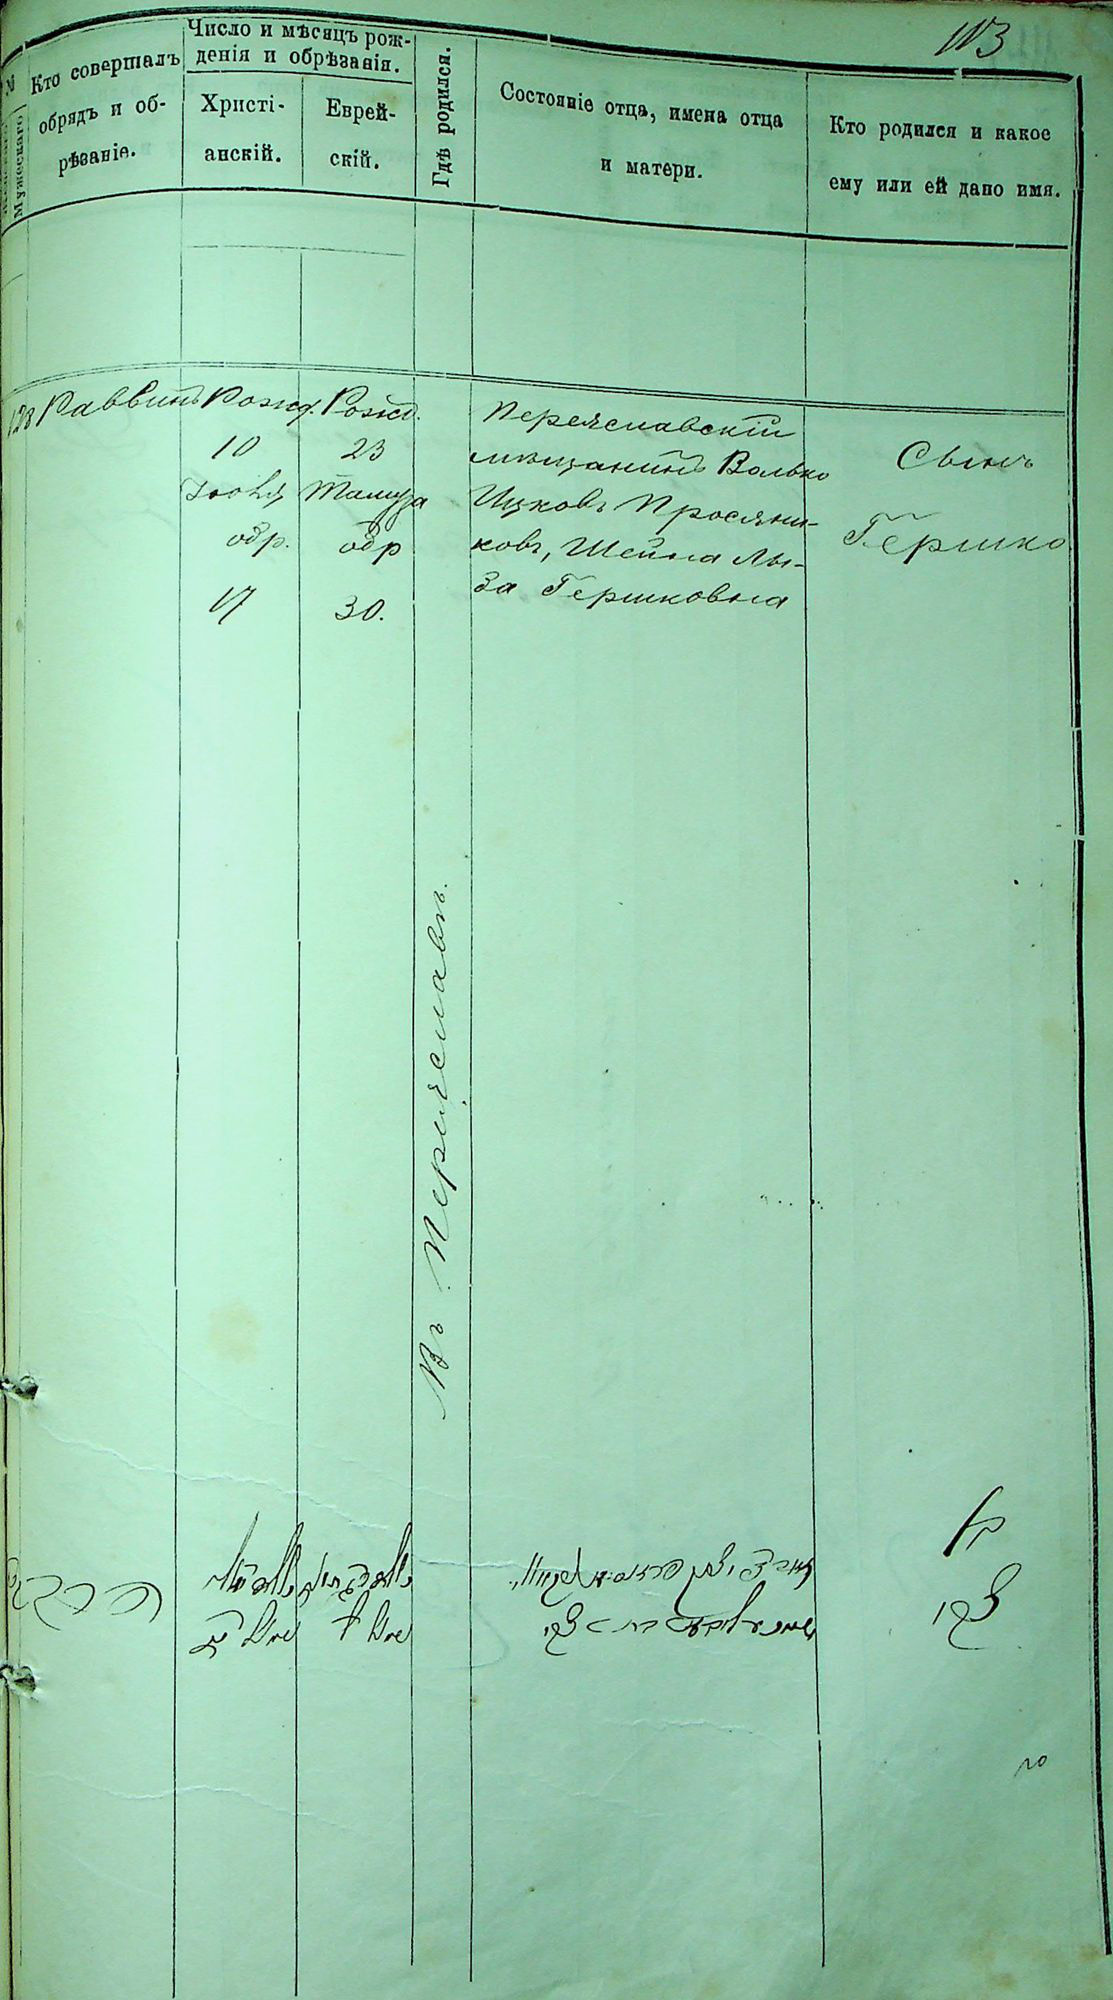 113
№
Мужескаго
Кто совершалъ
обрядъ и об-
рѣзаніе.
Число и мѣсяцъ рож-
денія и обрѣзанія.
Христі-
анскій.
Еврей-
скій.
Гдѣ родился.
Состояніе отца, имена отца
и матери.
Кто родился и какое
ему или ей дано имя.
123
Раввинъ
Рожд.
10
Іюля
обр.
17
Рожд.
23
Тамуза
обр
30.
Въ Переяславѣ.
Переяславскій
мѣщанинъ Волько
Ицковъ Просяни-
ковъ, Шейна Лы-
за Гершковна
Сынъ
Гершко
בן
צבי